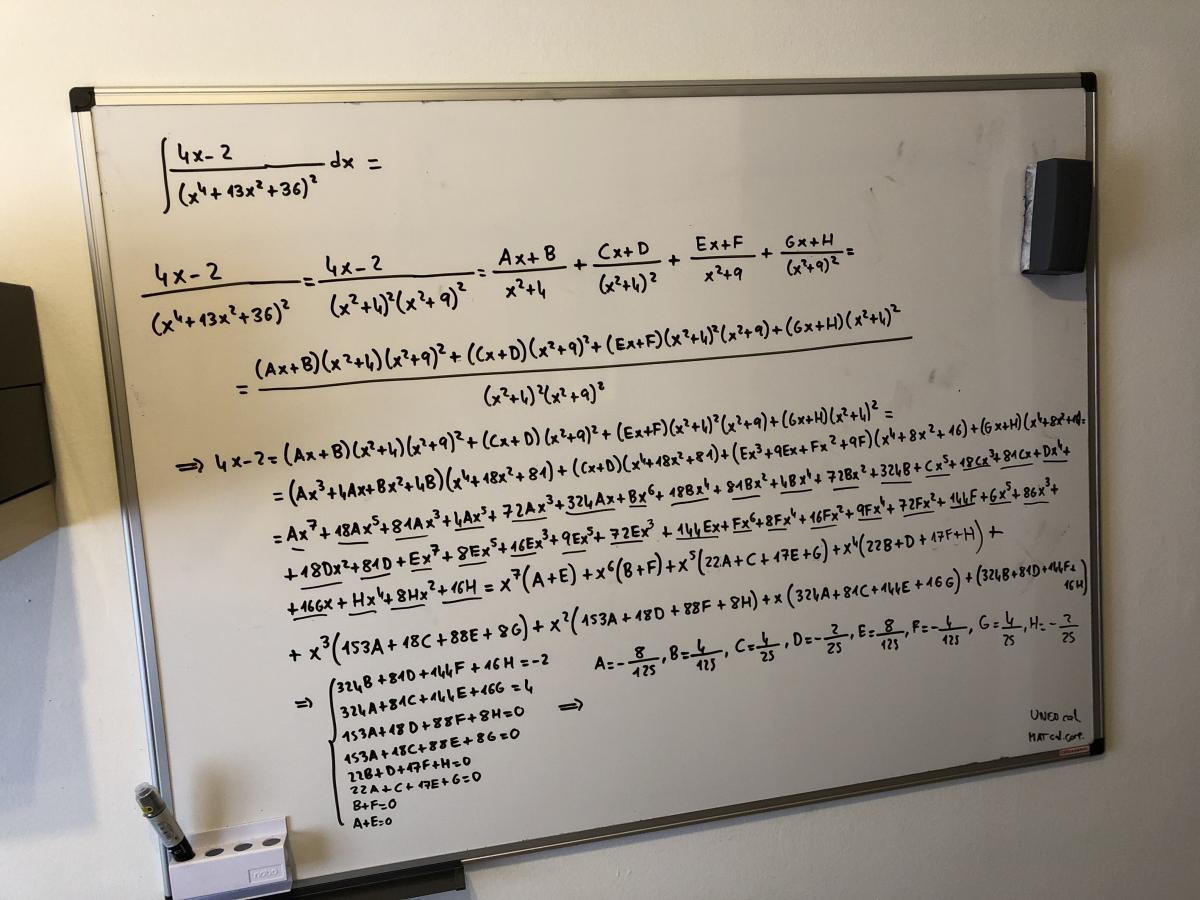 ∫ (4x-2)/(x⁴+13x²+36)² dx =
(4x-2)/(x⁴+13x²+36)² = (4x-2)/((x²+4)²(x²+9)²) = (Ax+B)/(x²+4) + (Cx+D)/(x²+4)² + (Ex+F)/(x²+9) + (Gx+H)/(x²+9)² =
= ((Ax+B)(x²+4)(x²+9)² + (Cx+D)(x²+9)² + (Ex+F)(x²+4)²(x²+9) + (Gx+H)(x²+4)²)/((x²+4)²(x²+9)²)
⇒ 4x-2 = (Ax+B)(x²+4)(x²+9)² + (Cx+D)(x²+9)² + (Ex+F)(x²+4)²(x²+9) + (Gx+H)(x²+4)² =
= (Ax³+4Ax+Bx²+4B)(x⁴+18x²+81) + (Cx+D)(x⁴+18x²+81) + (Ex³+9Ex+Fx²+9F)(x⁴+8x²+16) + (Gx+H)(x⁴+8x²+16)=
= Ax⁷ + 18Ax⁵ + 81Ax³ + 4Ax⁵ + 72Ax³ + 324Ax + Bx⁶ + 18Bx⁴ + 81Bx² + 4Bx⁴ + 72Bx² + 324B + Cx⁵ + 18Cx³ + 81Cx + Dx⁴ +
+ 18Dx² + 81D + Ex⁷ + 8Ex⁵ + 16Ex³ + 9Ex⁵ + 72Ex³ + 144Ex + Fx⁶ + 8Fx⁴ + 16Fx² + 9Fx⁴ + 72Fx² + 144F + Gx⁵ + 8Gx³ +
+ 16Gx + Hx⁴ + 8Hx² + 16H = x⁷(A+E) + x⁶(B+F) + x⁵(22A+C+17E+G) + x⁴(22B+D+17F+H) +
+ x³(153A+18C+88E+8G) + x²(153A+18D+88F+8H) + x(324A+81C+144E+16G) + (324B+81D+144F+
16H)
⇒ { 324B+81D+144F+16H=-2
324A+81C+144E+16G=4
153A+18D+88F+8H=0
153A+18C+88E+8G=0
22B+D+17F+H=0
22A+C+17E+G=0
B+F=0
A+E=0
⇒ A=-8/125, B=4/125, C=4/25, D=-2/25, E=8/125, F=-4/125, G=4/25, H=-2/25
nobo